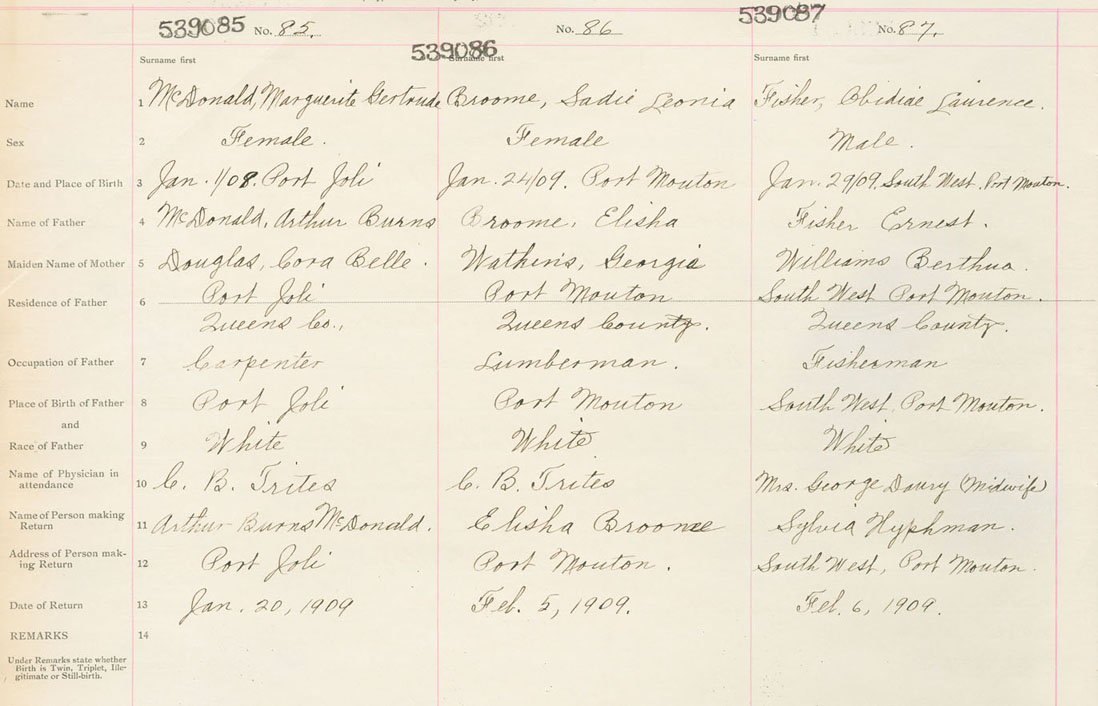 539085 No. 85. 539086 No. 86 539087 No. 87.
Surname first Surname first Surname first
Name 1 McDonald, Marguerite Gertrude Broome, Sadie Leonia Fisher, Obidiae Laurence.
Sex 2 Female. Female Male.
Date and Place of Birth 3 Jan. 1/08. Port Joli Jan. 24/09. Port Mouton Jan. 29/09. South West. Port Mouton.
Name of Father 4 McDonald, Arthur Burns Broome, Elisha Fisher Ernest.
Maiden Name of Mother 5 Douglas, Cora Belle. Watkins, Georgie Williams Berthua.
Residence of Father 6 Port Joli Port Mouton South West Port Mouton.
Queens Co., Queens County. Queens County.
Occupation of Father 7 Carpenter Lumberman. Fisherman
Place of Birth of Father 8 Port Joli Port Mouton South West. Port Mouton.
and
Race of Father 9 White White White
Name of Physician in
attendance 10 C. B. Trites C. B. Trites Mrs. George Daury (Midwife)
Name of Person making
Return 11 Arthur Burns McDonald. Elisha Broome Sylvia Hyphman.
Address of Person mak-
ing Return 12 Port Joli Port Mouton. South West, Port Mouton.
Date of Return 13 Jan. 20, 1909 Feb. 5, 1909. Feb. 6, 1909.
REMARKS 14
Under Remarks state whether
Birth is Twin, Triplet, Ille-
gitimate or Still-birth.